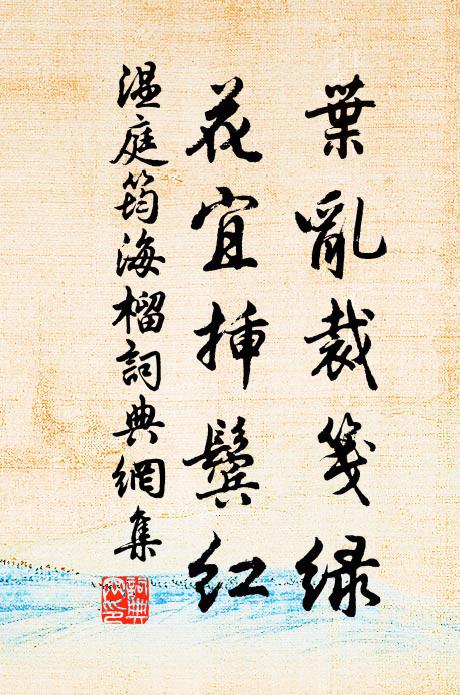 葉亂裁箋綠
花宜插鬢紅
温庭筠海榴詞典網集